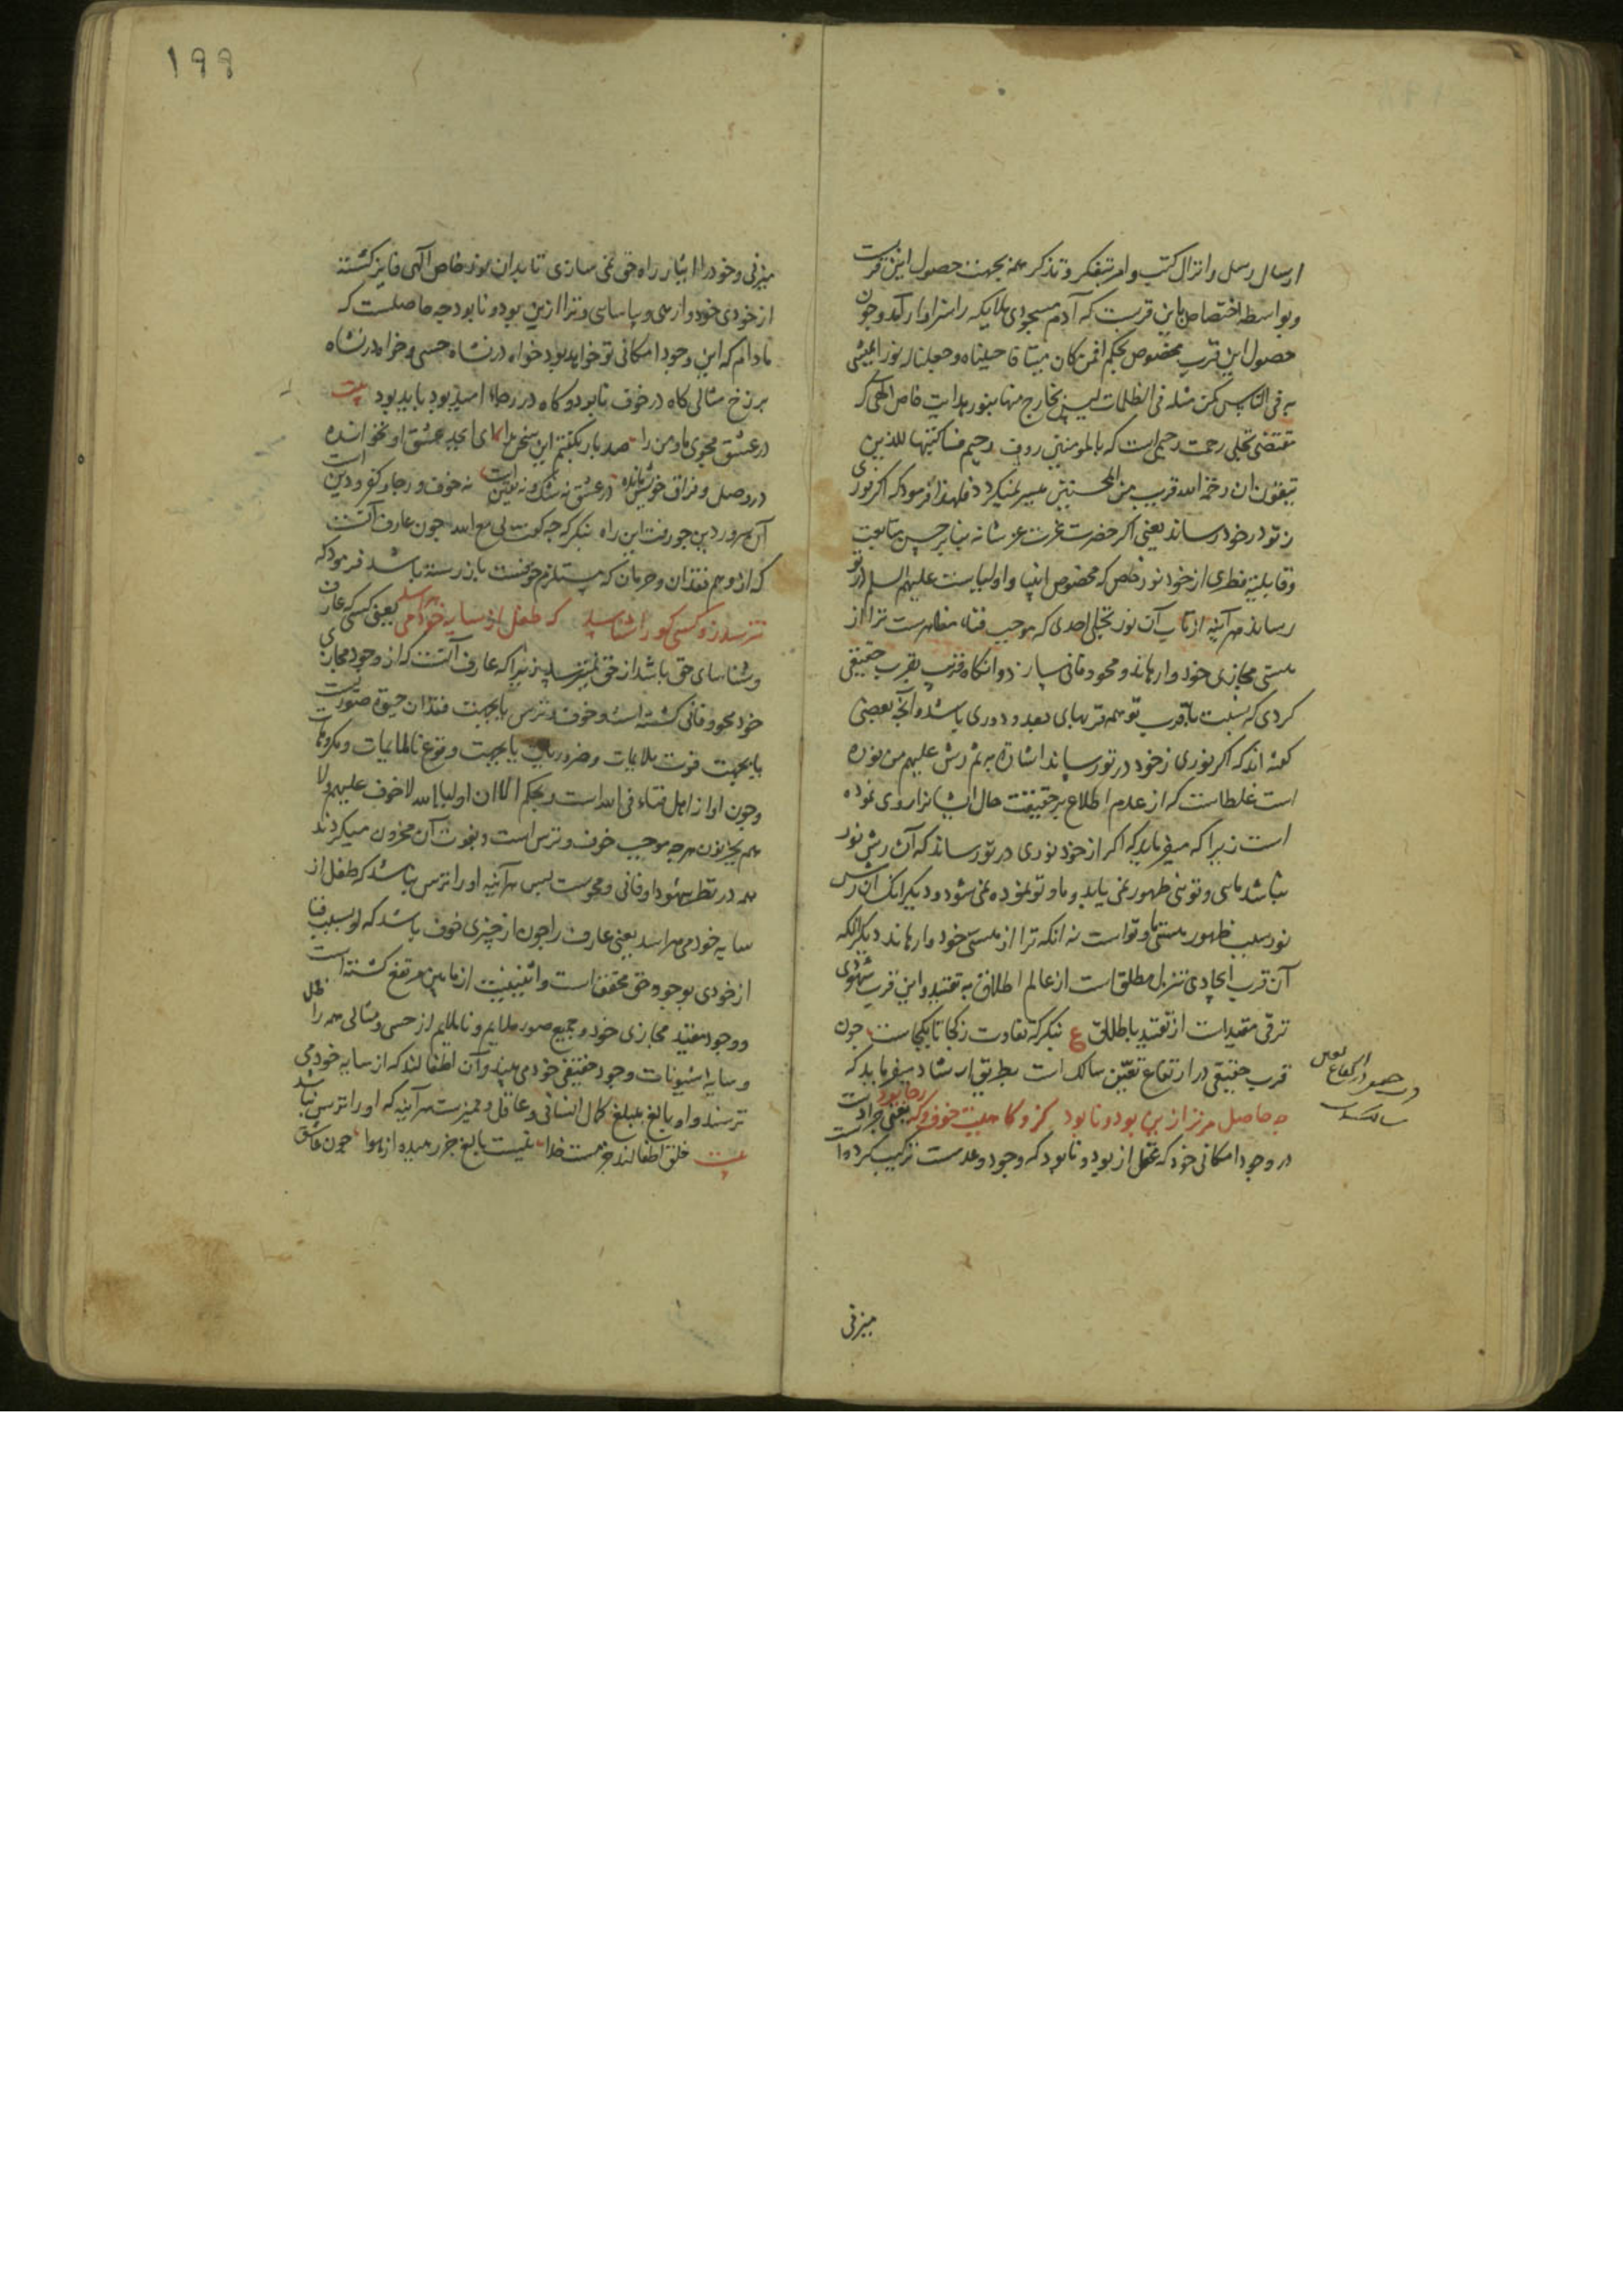 ارسال رسل و انزال کتب و امر بتفکر و تذکر همه بجهت حصول این قربت
و بواسطه اختصاص باین قربست که آدم مسجودی ملایکه را سزاوار آمد و چون
حصول این قرب مخصوص بحکم افمن کان میتا فاحییناه و جعلنا له نورا یمشی
به فی الناس کمن مثله فی الظلمات لیس بخارج منها بنور هدایت خاص الهی که
مقتضی تجلی رحمت رحیمی است که بالمومنین روف رحیم فساکتبها للذین
یتقون ان رحمة الله قریب من المحسنین میسر نمیکردد فلهذا فرمود که اکر نوری
ز خود در تو رساند یعنی اکر حضرت عزت عز شانه بنا بر حسن متابعت
و قابلیة فطری از خود نور خاص که مخصوص انبیا و اولیاست علیهم السلم در تو
رساند هر آینه از تاب آن نور تجلی احدی که موجب فناء مظاهرست ترا از
هستی مجازی خود وارهاند و محو و فانی سازد و انکاه قریب بقرب حقیقی
کردی که نسبت با قرب تو همه قربهای بعد و دوری باشد و آنچه بعضی
کفته اند که اکر نوری ز خود در تو رساند اشارة به ثم رش علیهم من نوره
است غلطاست که از عدم اطلاع بر حقیقت حال ایشانرا روی نموده
است زیرا که میفرماید که اکر از خود نوری در تو رساند که آن رش نور
نباشد مایی و تویی ظهور نمی یابد و ما و تو نموده نمی شود و دیکر انک آن رش
نور سبب ظهور هستی ما و تو است نه انکه ترا از هستی خود وارهاند دیکر انکه
آن قرب ایجادی تنزل مطلق است از عالم اطلاق به تقیید و این قرب شهودی
ترقی مقیدات از تقیید باطلاق ع بنکر که تفاوت ز کجا تا بکجاست چون
قرب حقیقی در ارتفاع تعین سالک است بطریق ارشاد میفرماید که
چه حاصل مر ترا زین بود و نابود کزو کاهیت خوف و که رجا بود یعنی چرا دست
در وجود امکانی خود که تخیل از بود و نابود که وجود و عدمست ترکیب کرده است
در ارتفاع تعین
سالکست
میزنی
۱۹۹
میزنی و خود را ایثار راه حق نمی سازی تا بدان نور خاص الهی فایز کشته
از خودی خود و از هی و پاساسی و ترا ازین بود و نابود چه حاصلست که
مادام که این وجود امکانی تو خواهد بود خواه در نشاه حسی و خواه در نشاه
برزخ مثالی کاه در خوف نابود و کاه در رجاء امید بود باید بود بیت
در عشق مجوی ما و من را صد بار بکفتم این سخن را ای ابجد عشق او نخوانده
در وصل و فراق خویش مانده در عشق نه شک و نه یقین است نه خوف و رجا و کفر و دین است
آن سرور دین چو رفت این راه بنکر که چه کفت لی مع الله چون عارف آنست
که از وهم فقدان و حرمان که مستلزم خوفست باز رسته باشد فرمود که
نترسد زو کسی کو را شناسد که طفل از سایه خود می هراسد یعنی کسی که عارف
و شناسای حق باشد از حق نمیترسد زیرا که عارف آنست که از وجود مجازی
خود محو و فانی کشته است و خوف و ترس یا بجهت فقدان حیوة صوریست
یا بجهت فوت ملایمات و ضروریات یا بجهت وقوع ناملایمات و مکروهات
و چون او از اهل فناء فی الله است و بحکم الا ان اولیاء الله لا خوف علیهم و لا
هم یحزنون هرچه موجب خوف و ترس است و بفوت آن محزون میکردند
همه در نظر شهود او فانی و محوست پس هر آینه او را ترس نباشد که طفل از
سایه خود می هراسد یعنی عارف را چون از چیزی خوف باشد که او بسبب فنا
از خودی بوجود حق محقق است و اثنینیت از مابین مرتفع کشته است
و وجود مقید مجازی خود و جمیع صور ملایم و ناملایم از حسی و مثالی همه را ظل
و سایه شیونات وجود حقیقی خود می بیند و آن اطفالند که از سایه خود می
ترسند و او بالغ بمبلغ کمال انسانی و عاقل و ممیزست هر آینه که او را ترس نباشد
بیت خلق اطفالند جز مست خدا نیست بالغ جز رهیده از هوا چون عاشق